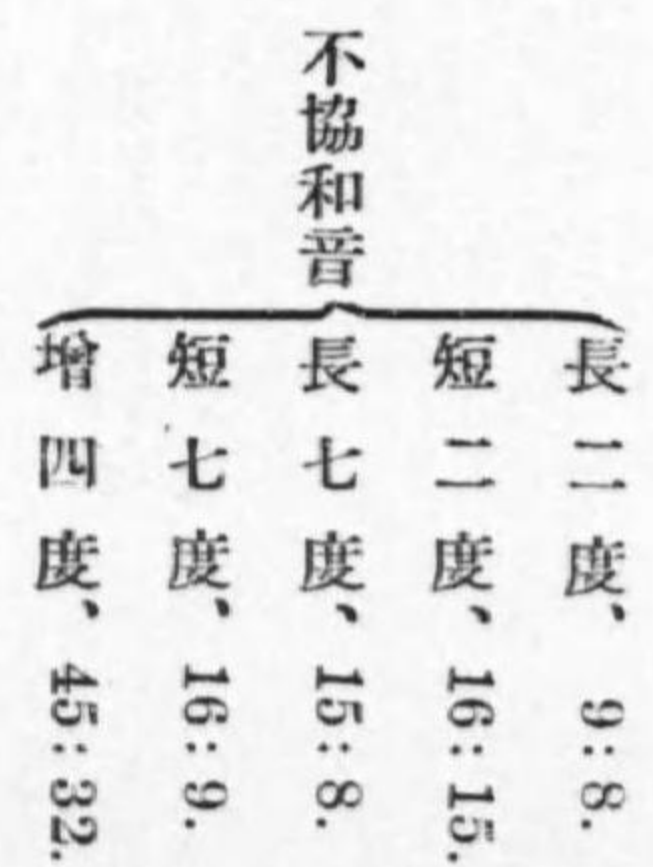 不協和音
長二度、 9:8.
短二度、 16:15.
長七度、 15:8.
短七度、 16:9.
增四度、 45:32.